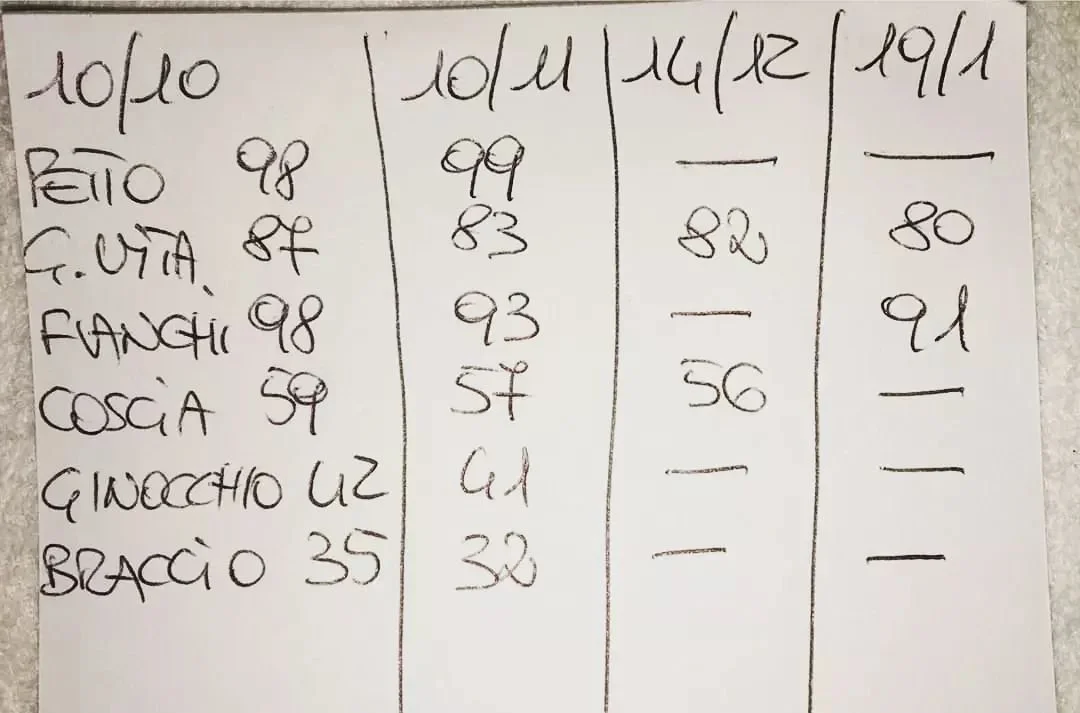 10/10 10/11 14/12 19/1
PETTO 98 99 — —
G.VITA 87 83 82 80
FIANCHI 98 93 — 91
COSCIA 59 57 56 —
GINOCCHIO 42 41 — —
BRACCIO 35 32 — —